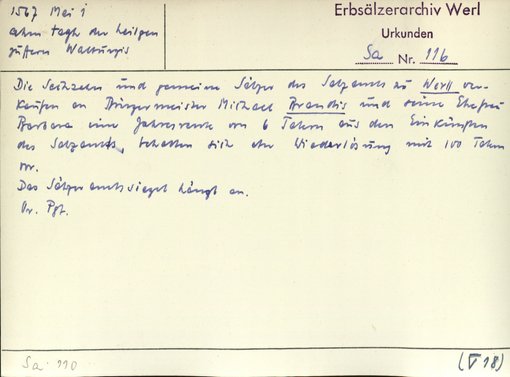 1567 Mai 1
ahm tagh der heilgen
juffern Walburgis
Erbsälzerarchiv Werl
Urkunden
Sa Nr. 116
Die Sechzehn und gemeine Sälzer des Salzamts zu Werll ver-
kaufen an Bürgermeister Michael Brandis und seine Ehefrau
Barbara eine Jahresrente von 6 Talern aus den Einkünften
des Salzamts, behalten sich aber Wiederlösung mit 100 Talern
vor.
Das Sälzeramtssiegel hängt an.
Or. Pgt.
Sa 110
(V 18)